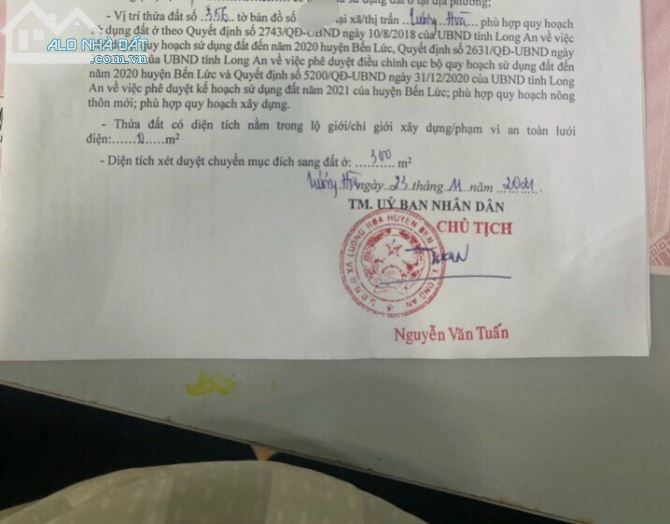 ALO NHÀ ĐẤT
sử dụng đất ở tại địa phương;
- Vị trí thửa đất số 356, tờ bản đồ số tại xã/thị trấn Lương Hòa, phù hợp quy hoạch
sử dụng đất ở theo Quyết định số 2743/QĐ-UBND ngày 10/8/2018 của UBND tỉnh Long An về việc
quy hoạch sử dụng đất đến năm 2020 huyện Bến Lức, Quyết định số 2631/QĐ-UBND ngày
của UBND tỉnh Long An về việc phê duyệt điều chỉnh cục bộ quy hoạch sử dụng đất đến
năm 2020 huyện Bến Lức và Quyết định số 5200/QĐ-UBND ngày 31/12/2020 của UBND tỉnh Long
An về việc phê duyệt kế hoạch sử dụng đất năm 2021 của huyện Bến Lức; phù hợp quy hoạch nông
thôn mới; phù hợp quy hoạch xây dựng.
- Thửa đất có diện tích nằm trong lộ giới/chỉ giới xây dựng/phạm vi an toàn lưới
điện:......0....m²
- Diện tích xét duyệt chuyển mục đích sang đất ở: ...300... m²
Lương Hòa ngày 23 tháng 11 năm 2021.
TM. UỶ BAN NHÂN DÂN
CHỦ TỊCH
U.B.N.D XÃ LƯƠNG HÒA HUYỆN BẾN LONG AN
Nguyễn Văn Tuấn